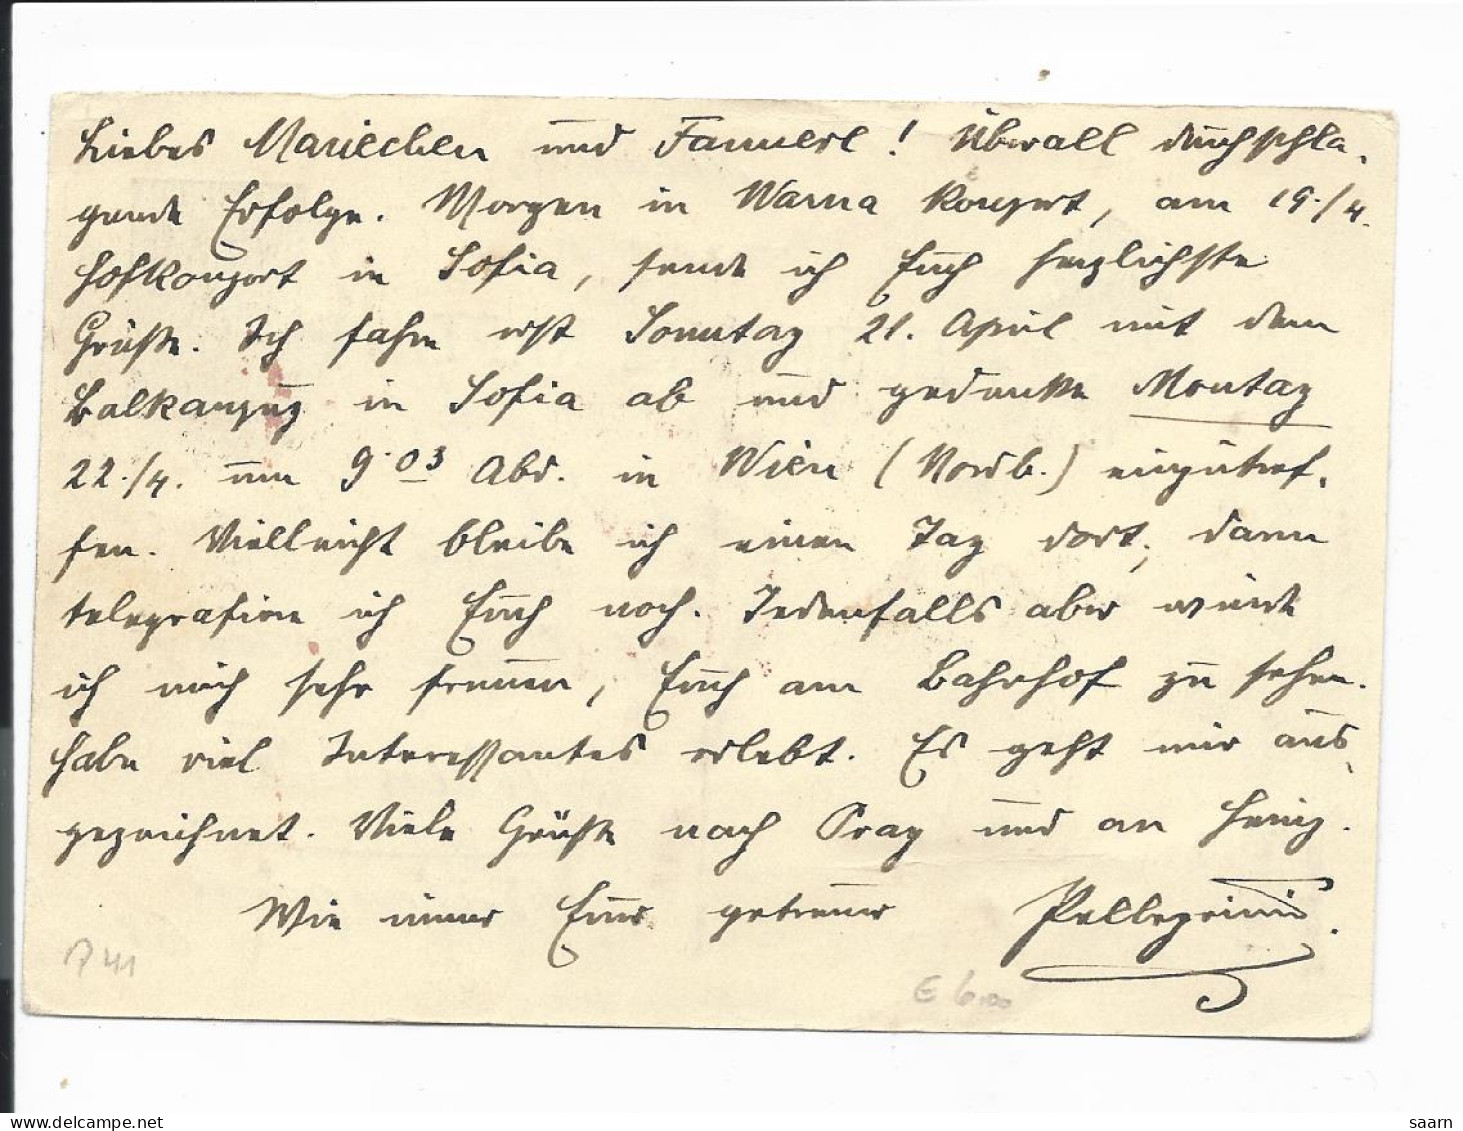 Liebes Mariechen und Fannerl! Überall durchschla-
gende Erfolge. Morgen in Warna Konzert, am 19./4.
Hofkonzert in Sofia, sende ich Euch herzlichste
Grüße. Ich fahre erst Sonntag 21. April mit dem
Balkanzug in Sofia ab und gedenke Montag
22./4. um 9.03 Abd. in Wien (Nordb.) einzutref-
fen. Vielleicht bleibe ich einen Tag dort, dann
telegrafiere ich Euch noch. Jedenfalls aber würde
ich mich sehr freuen, Euch am Bahnhof zu sehen.
Habe viel Interessantes erlebt. Es geht mir aus-
gezeichnet. Viele Grüße nach Prag und an Heinz.
Wie immer Euer getreuer Pellegrini.
P 41
€ 6,00
saarn